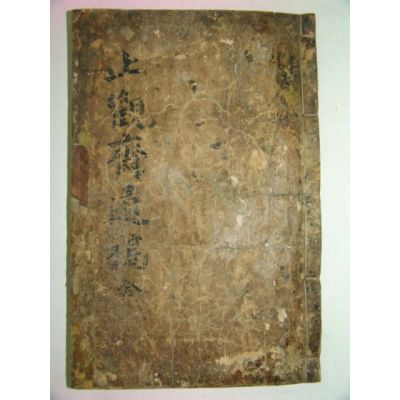 止觀齋遺稿 全